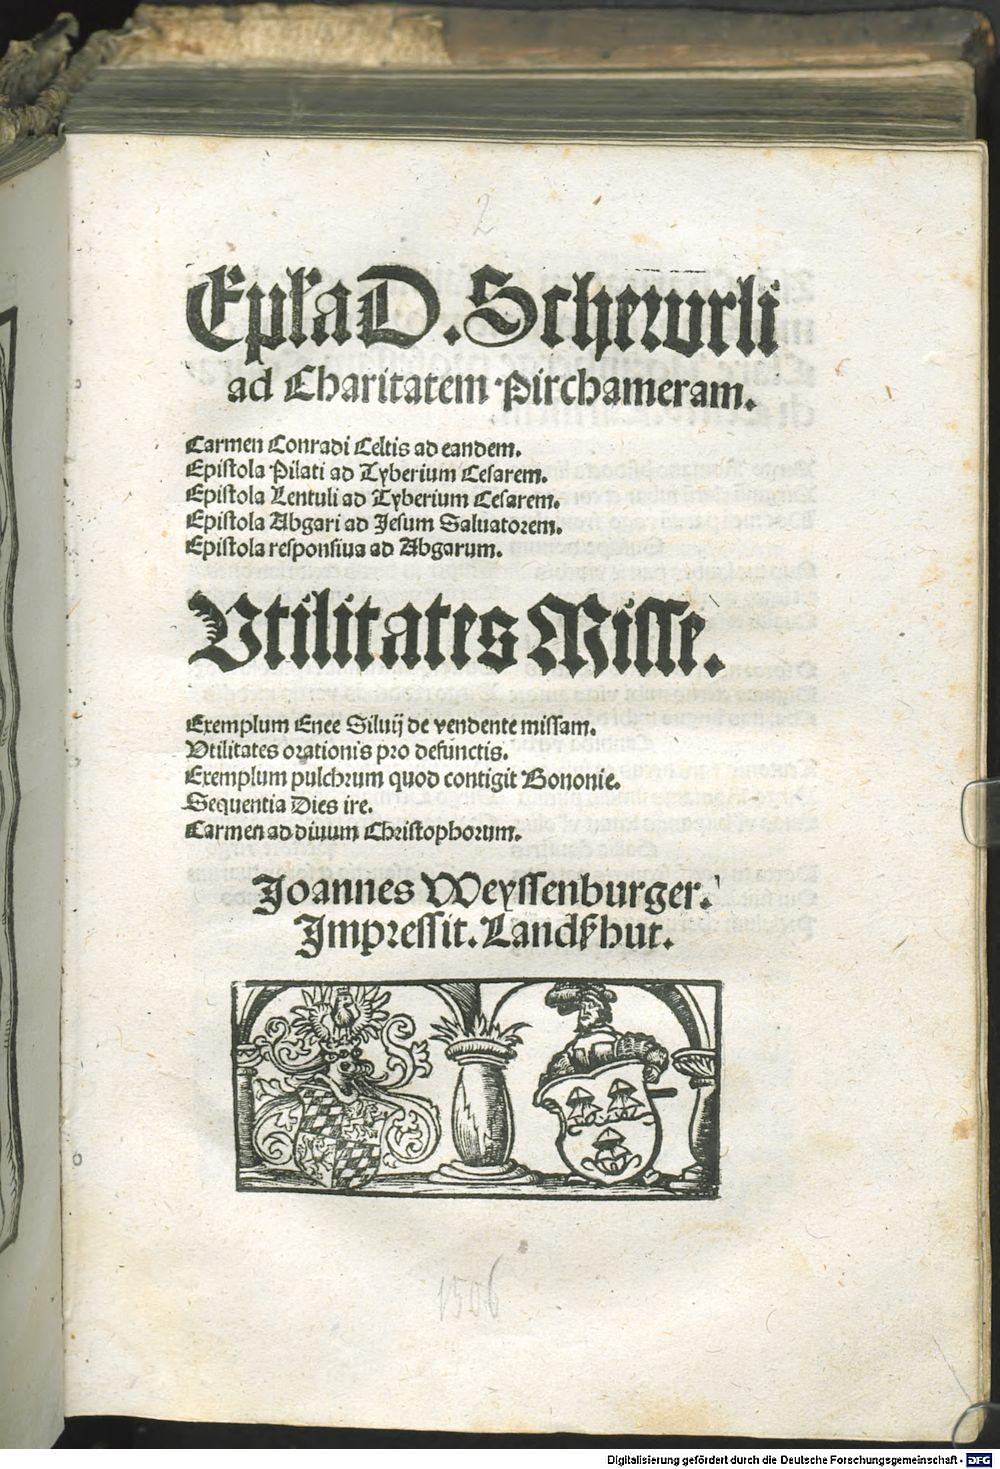 2
Ep̄ſ̄a D. Scheurli
ad Charitatem Pirchameram.
Carmen Conradi Celtis ad eandem.
Epistola Pilati ad Tyberium Cesarem.
Epistola Lentuli ad Tyberium Cesarem.
Epistola Abgari ad Jesum Saluatorem.
Epistola responsiua ad Abgarum.
Vtilitates Misse.
Exemplum Enee Siluij de vendente missam.
Vtilitates orationis pro defunctis.
Exemplum pulchrum quod contigit Bononie.
Sequentia Dies ire.
Carmen ad diuum Christophorum.
Joannes Weyssenburger.
Impressit. Landshut.
1506
Digitalisierung gefördert durch die Deutsche Forschungsgemeinschaft - DFG